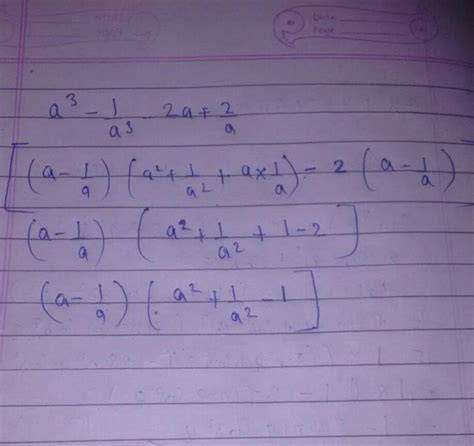 Date
Page
a³ - 1/a³ - 2a + 2/a
[(a - 1/a) (a² + 1/a² + a × 1/a) = 2 (a - 1/a)
(a - 1/a) [a² + 1/a² + 1 - 2]
(a - 1/a) [a² + 1/a² - 1]